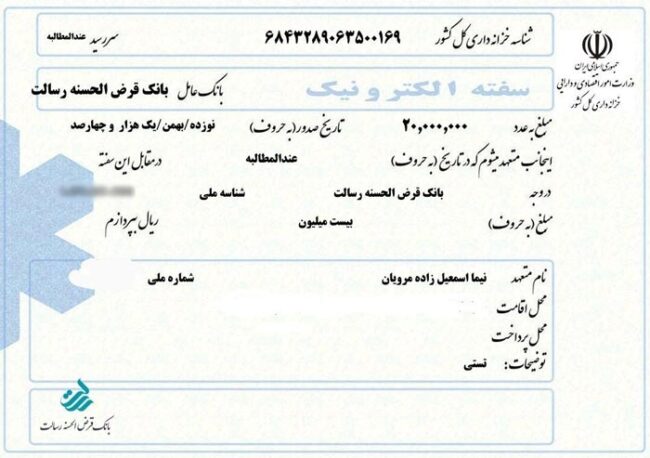 جمهوری اسلامی ایران
وزارت امور اقتصادی و دارایی
خزانه داری کل کشور
شناسه خزانه داری کل کشور ۶۸۴۳۲۸۹۰۶۳۵۰۰۱۶۹ سررسید عندالمطالبه
سفته الکترونیک بانک عامل بانک قرض الحسنه رسالت
مبلغ به عدد ۲۰,۰۰۰,۰۰۰ تاریخ صدور (به حروف) نوزده/بهمن/یک هزار و چهارصد
اینجانب متعهد میشوم که در تاریخ (به حروف) عندالمطالبه در مقابل این سفته
در وجه بانک قرض الحسنه رسالت شناسه ملی
مبلغ (به حروف) بیست میلیون ریال بپردازم
نام متعهد نیما اسمعیل زاده مرویان شماره ملی
محل اقامت
محل پرداخت
توضیحات: تستی
رسالت
بانک قرض الحسنه رسالت